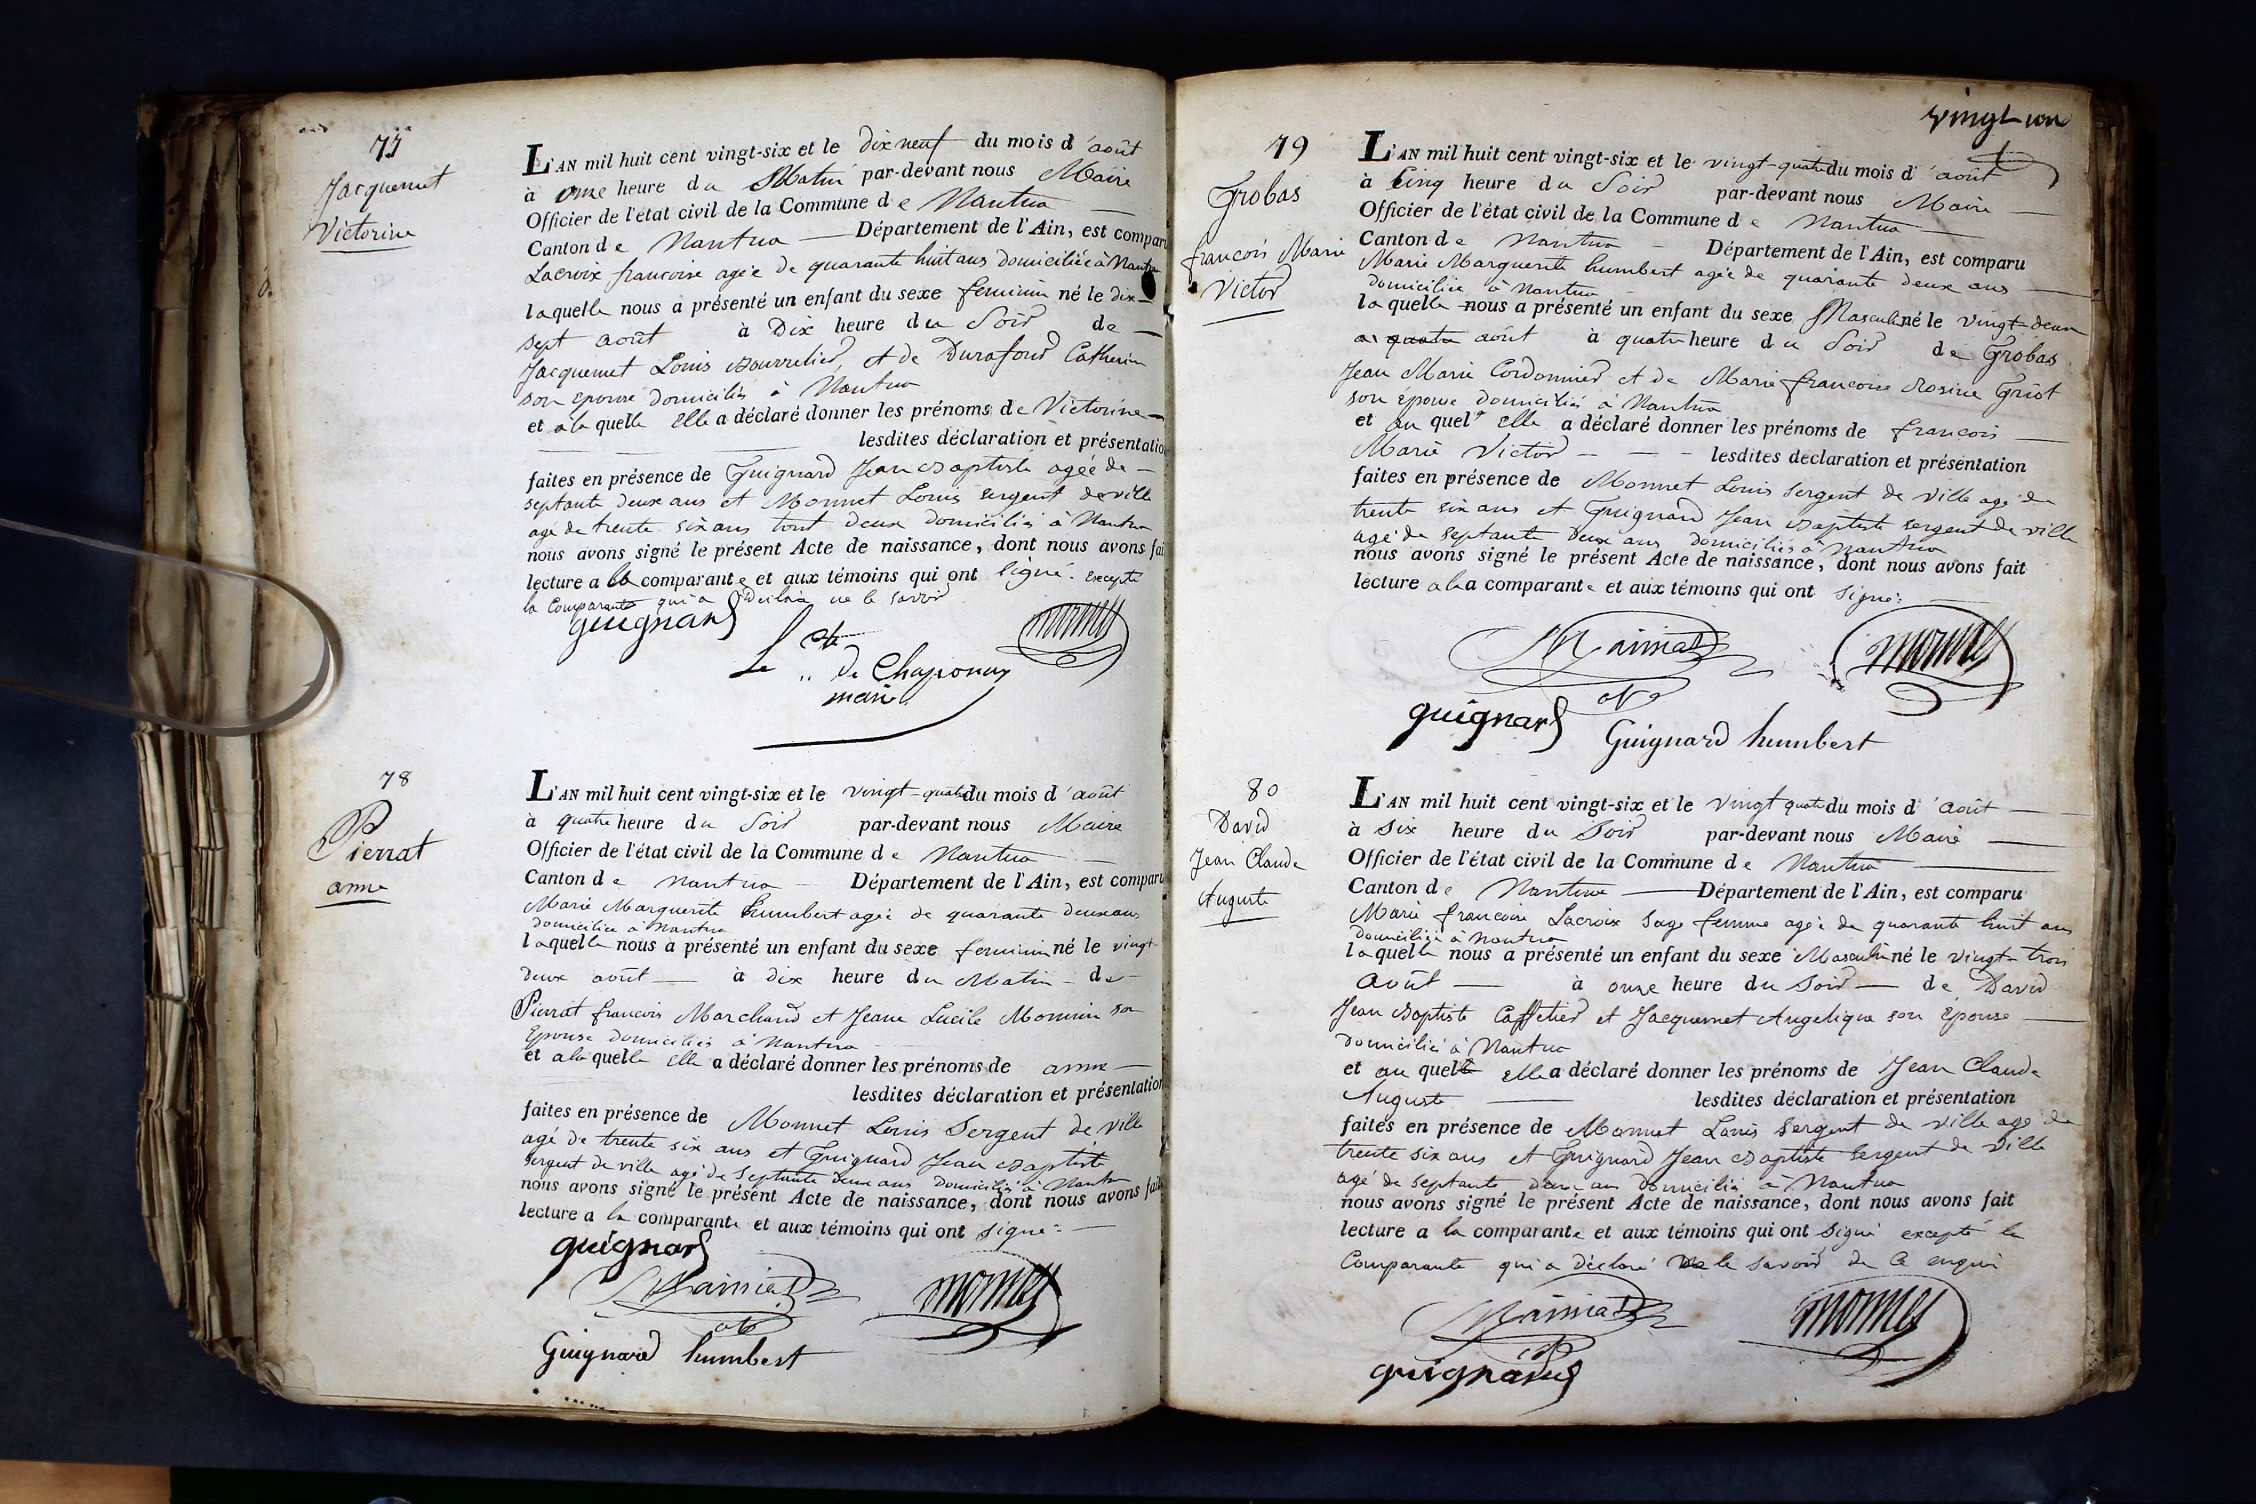 77
Jacquemet
Victorine
L'AN mil huit cent vingt-six et le dix neuf du mois d'août
à onze heure du Matin par-devant nous Maire
Officier de l'état civil de la Commune de Nantua
Canton de Nantua Département de l'Ain, est comparu
Lacroix françoise agée de quarante huit ans domiciliée à Nantua
laquelle nous a présenté un enfant du sexe feminin né le dix
sept août à Dix heure du Soir de
Jacquemet Louis Bourrelier, et de Durafour Catherine
son epouse domiciliés à Nantua
et a la quelle Elle a déclaré donner les prénoms de Victorine
lesdites déclaration et présentation
faites en présence de Guignard Jean Baptiste agée de
septante deux ans et Monnet Louis sergent de ville
agé de trente six ans tout deux domiciliés à Nantua
nous avons signé le présent Acte de naissance, dont nous avons fait
lecture a la comparante et aux témoins qui ont signé. Excepté
la Comparante qui a Déclaré ne le savoir
guignard monnet
Le Cte
de Chaponay
maire
78
Pierrat
anne
L'AN mil huit cent vingt-six et le vingt-quatre du mois d'août
à quatre heure du Soir par-devant nous Maire
Officier de l'état civil de la Commune de Nantua
Canton de nantua Département de l'Ain, est comparu
Marie Marguerite humbert agée de quarante deux ans
domiciliée à Nantua
laquelle nous a présenté un enfant du sexe feminin né le vingt-
deux août à dix heure du Matin de
Pierrat françois Marchand et Jeane Lucile Monnin son
Epouse domiciliés à Nantua
et a la quelle elle a déclaré donner les prénoms de anne
lesdites déclaration et présentation
faites en présence de Monnet Louis Sergent de ville
agé de trente six ans et Guignard Jean Baptiste
sergent de ville agé de septante deux ans domiciliés à Nantua
nous avons signé le présent Acte de naissance, dont nous avons fait
lecture a la comparante et aux témoins qui ont signé
guignard
monnet
Guignard humbert
vingt-un
79
Grobas
francois Marie
Victor
L'AN mil huit cent vingt-six et le vingt-quatre du mois d'août
à Cinq heure du Soir par-devant nous Maire
Officier de l'état civil de la Commune de Nantua
Canton de Nantua Département de l'Ain, est comparu
Marie Marguerite humbert agée de quarante deux ans
domiciliée à Nantua
laquelle nous a présenté un enfant du sexe Masculin né le vingt-deux
août à quatre heure du Soir de Grobas
Jean Marie Cordonnier et de Marie françoise Rosine Griot
son Epouse domiciliés à Nantua
et au quel Elle a déclaré donner les prénoms de françois
Marie Victor lesdites declaration et présentation
faites en présence de Monnet Louis sergent de ville agé de
trente six ans et Guignard Jean Baptiste sergent de ville
agé de septante deux ans domiciliés à Nantua
nous avons signé le présent Acte de naissance, dont nous avons fait
lecture a la comparante et aux témoins qui ont signé
monnet
guignard
Guignard humbert
80
David
Jean Claude
Auguste
L'AN mil huit cent vingt-six et le vingt quatre du mois d'août
à Six heure du Soir par-devant nous Maire
Officier de l'état civil de la Commune de Nantua
Canton de Nantua Département de l'Ain, est comparu
Marie françoise Lacroix sage femme agée de quarante huit ans
domiciliée à nantua
laquelle nous a présenté un enfant du sexe Masculin né le vingt-trois
Août à onze heure du Soir de David
Jean Baptiste Caffetier et Jacquemet Angelique son Epouse
domiciliés à Nantua
et au quel elle a déclaré donner les prénoms de Jean Claude
Auguste lesdites déclaration et présentation
faites en présence de Monnet Louis sergent de ville agé de
trente six ans et Guignard Jean Baptiste sergent de ville
agé de septante deux ans domiciliés à Nantua
nous avons signé le présent Acte de naissance, dont nous avons fait
lecture a la comparante et aux témoins qui ont Signé excepté la
Comparante qui a déclaré ne le savoir de ce enquis
monnet
guignard